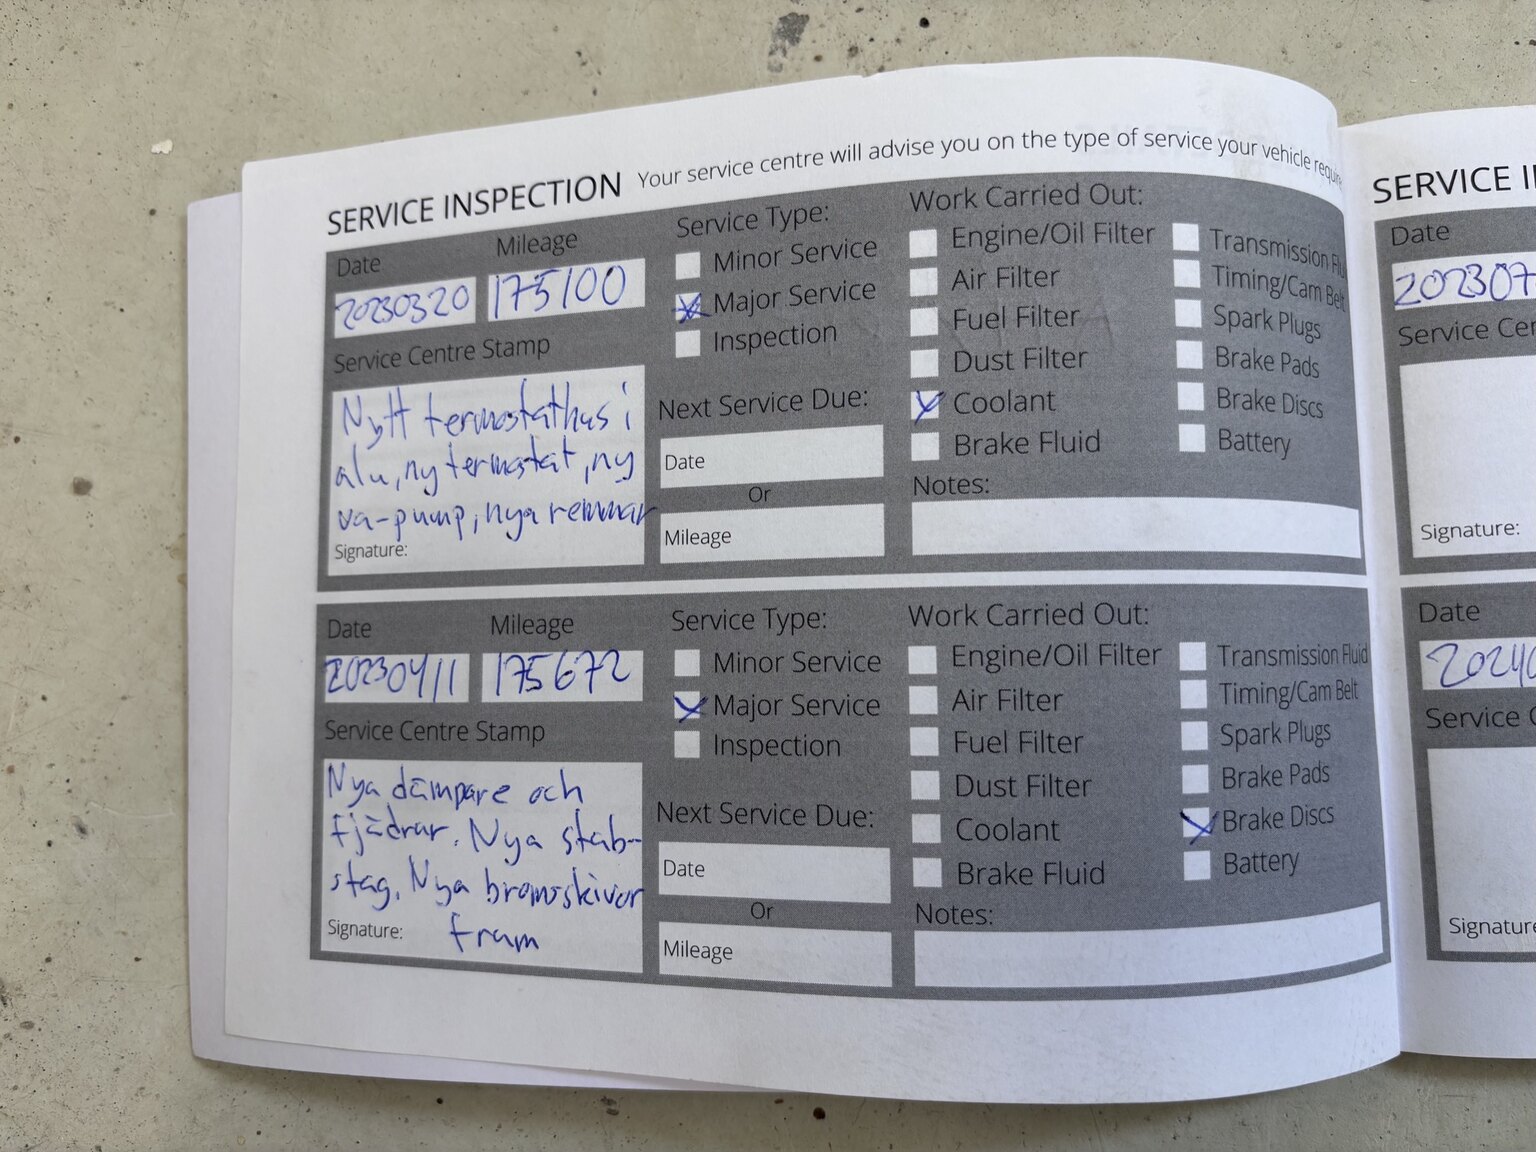 SERVICE INSPECTION Your service centre will advise you on the type of service your vehicle
Date Mileage
20230320 175100
Service Centre Stamp
Nytt termostathus i
alu, ny termostat, ny
va-pump, nya remmar
Signature:
Service Type:
Minor Service
Major Service
Inspection
Next Service Due:
Date
Or
Mileage
Work Carried Out:
Engine/Oil Filter
Air Filter
Fuel Filter
Dust Filter
Coolant
Brake Fluid
Transmission
Timing/Cam Belt
Spark Plugs
Brake Pads
Brake Discs
Battery
Notes:
Date Mileage
20230411 175672
Service Centre Stamp
Nya dämpare och
fjädrar. Nya stab-
stag. Nya bromsskivor
fram
Signature:
Service Type:
Minor Service
Major Service
Inspection
Next Service Due:
Date
Or
Mileage
Work Carried Out:
Engine/Oil Filter
Air Filter
Fuel Filter
Dust Filter
Coolant
Brake Fluid
Transmission Fluid
Timing/Cam Belt
Spark Plugs
Brake Pads
Brake Discs
Battery
Notes:
SERVICE
Date
202307
Service
Signature:
Date
Service